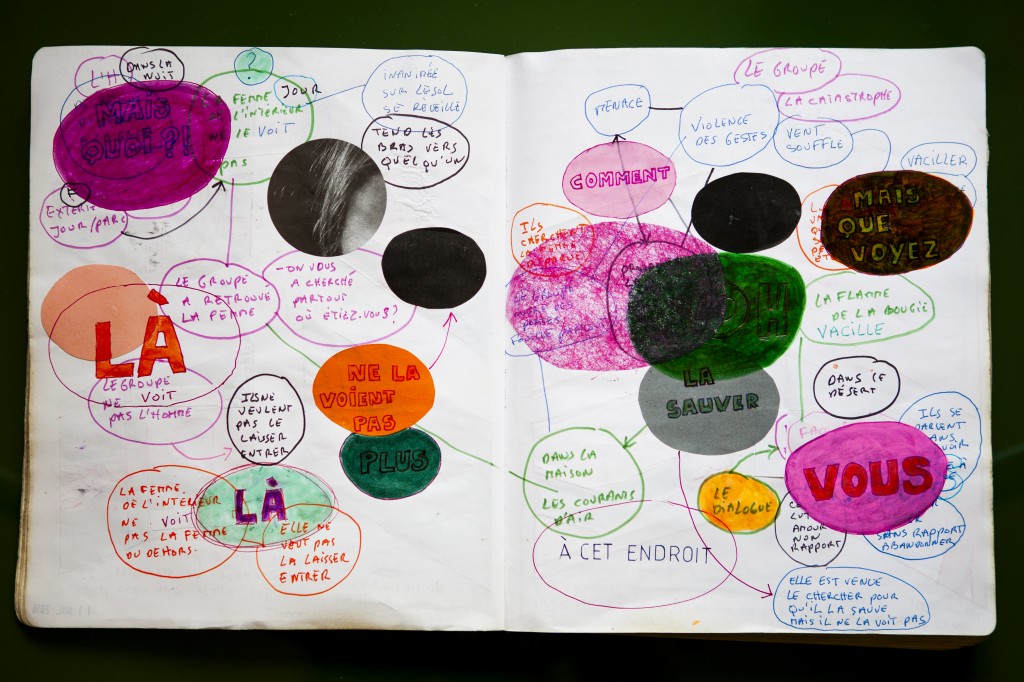 DANS LA
NUIT
L'H
MAIS
QUOI ?!
?
FEMME
L'INTÉRIEUR
NE LE VOIT
PAS
JOUR
INANIMÉE
SUR LE SOL
SE RÉVEILLE
TEND LES
BRAS VERS
QUELQU'UN
JOUR/PARC
LE GROUPE
A RETROUVÉ
LA FEMME
- ON VOUS
A CHERCHÉ
PARTOUT
OÙ ÉTIEZ-VOUS ?
LÀ
LE GROUPE
NE VOIT
PAS L'HOMME
ILS NE
VEULENT
PAS LE
LAISSER
ENTRER
NE LA
VOIENT
PAS
PLUS
LA FEMME
DE L'INTÉRIEUR
NE VOIT
PAS LA FEMME
DU DEHORS.
LÀ
ELLE NE
VEUT PAS
LA LAISSER
ENTRER
LE GROUPE
LA CATASTROPHE
MENACE
VIOLENCE
DES GESTES
VENT
SOUFFLE
VACILLER
COMMENT
MAIS
QUE
VOYEZ
ILS
CHERCHENT
LA FEMME
OH
LA FLAMME
DE LA BOUGIE
VACILLE
LA
SAUVER
DANS LE
DÉSERT
DANS LA
MAISON
LES COURANTS
D'AIR
LE
DIALOGUE
VOUS
ILS SE
PARLENT
SANS
AMOUR
NON
RAPPORT
SANS RAPPORT
ABANDONNER
À CET ENDROIT
ELLE EST VENUE
LE CHERCHER POUR
QU'IL LA SAUVE
MAIS IL NE LA VOIT PAS